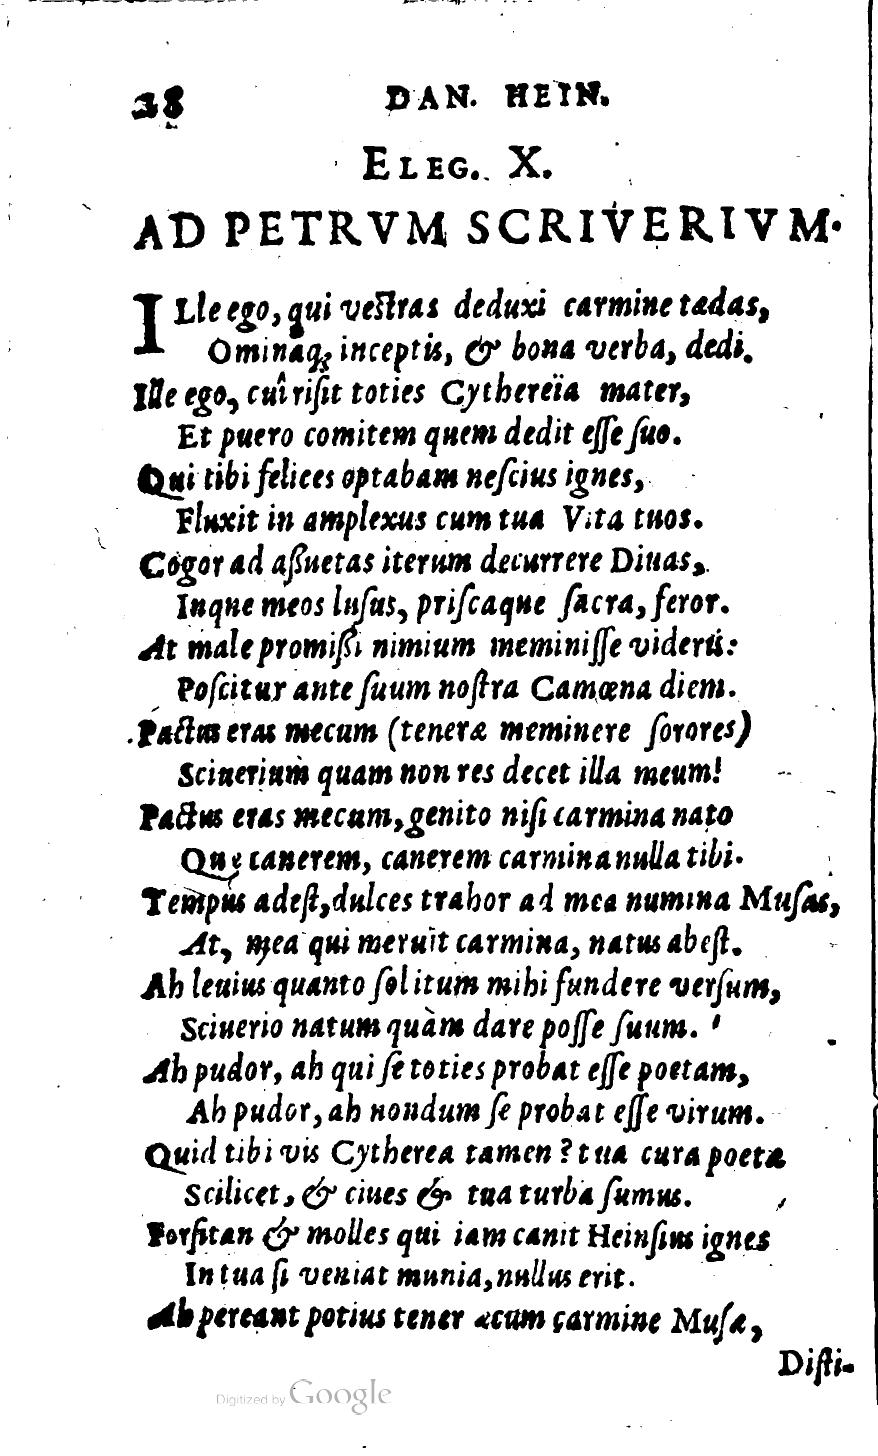 28 DAN. HEIN.
ELEG. X.
AD PETRVM SCRIVERIVM.
ILle ego, qui vestras deduxi carmine tædas,
Ominaq; inceptis, & bona verba, dedi.
Ille ego, cuî risit toties Cythereïa mater,
Et puero comitem quem dedit esse suo.
Qui tibi felices optabam nescius ignes,
Fluxit in amplexus cum tua Vita tuos.
Cogor ad aßuetas iterum decurrere Diuas,
Inque meos lusus, priscaque sacra, feror.
At male promißi nimium meminisse videris:
Poscitur ante suum nostra Camœna diem.
Pactus eras mecum (teneræ meminere sorores)
Sciuerium quam non res decet illa meum!
Pactus eras mecum, genito nisi carmina nato
Que canerem, canerem carmina nulla tibi.
Tempus adest, dulces trahor ad mea numina Musas,
At, mea qui meruit carmina, natus abest.
Ah leuius quanto solitum mihi fundere versum,
Sciuerio natum quàm dare posse suum.
Ah pudor, ah qui se toties probat esse poetam,
Ah pudor, ah nondum se probat esse virum.
Quid tibi vis Cytherea tamen? tua cura poetæ
Scilicet, & ciues & tua turba sumus.
Forsitan & molles qui iam canit Heinsius ignes
In tua si veniat munia, nullus erit.
Ah pereant potius tener æcum carmine Musæ,
Disti-
Digitized by Google